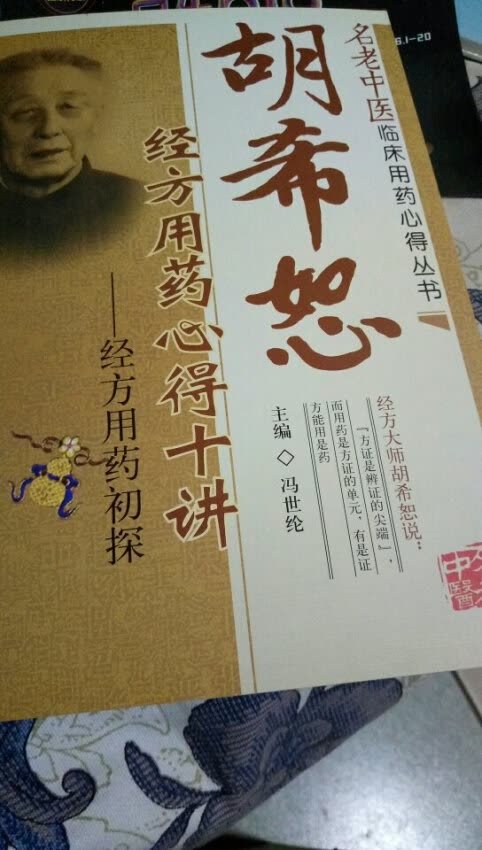 名老中医临床用药心得丛书
胡希恕
经方用药心得十讲
——经方用药初探
主编◇冯世纶
经方大师胡希恕说：
『方证是辨证的尖端』，
而用药是方证的单元，有是证
方能用是药
中医
6.1-20